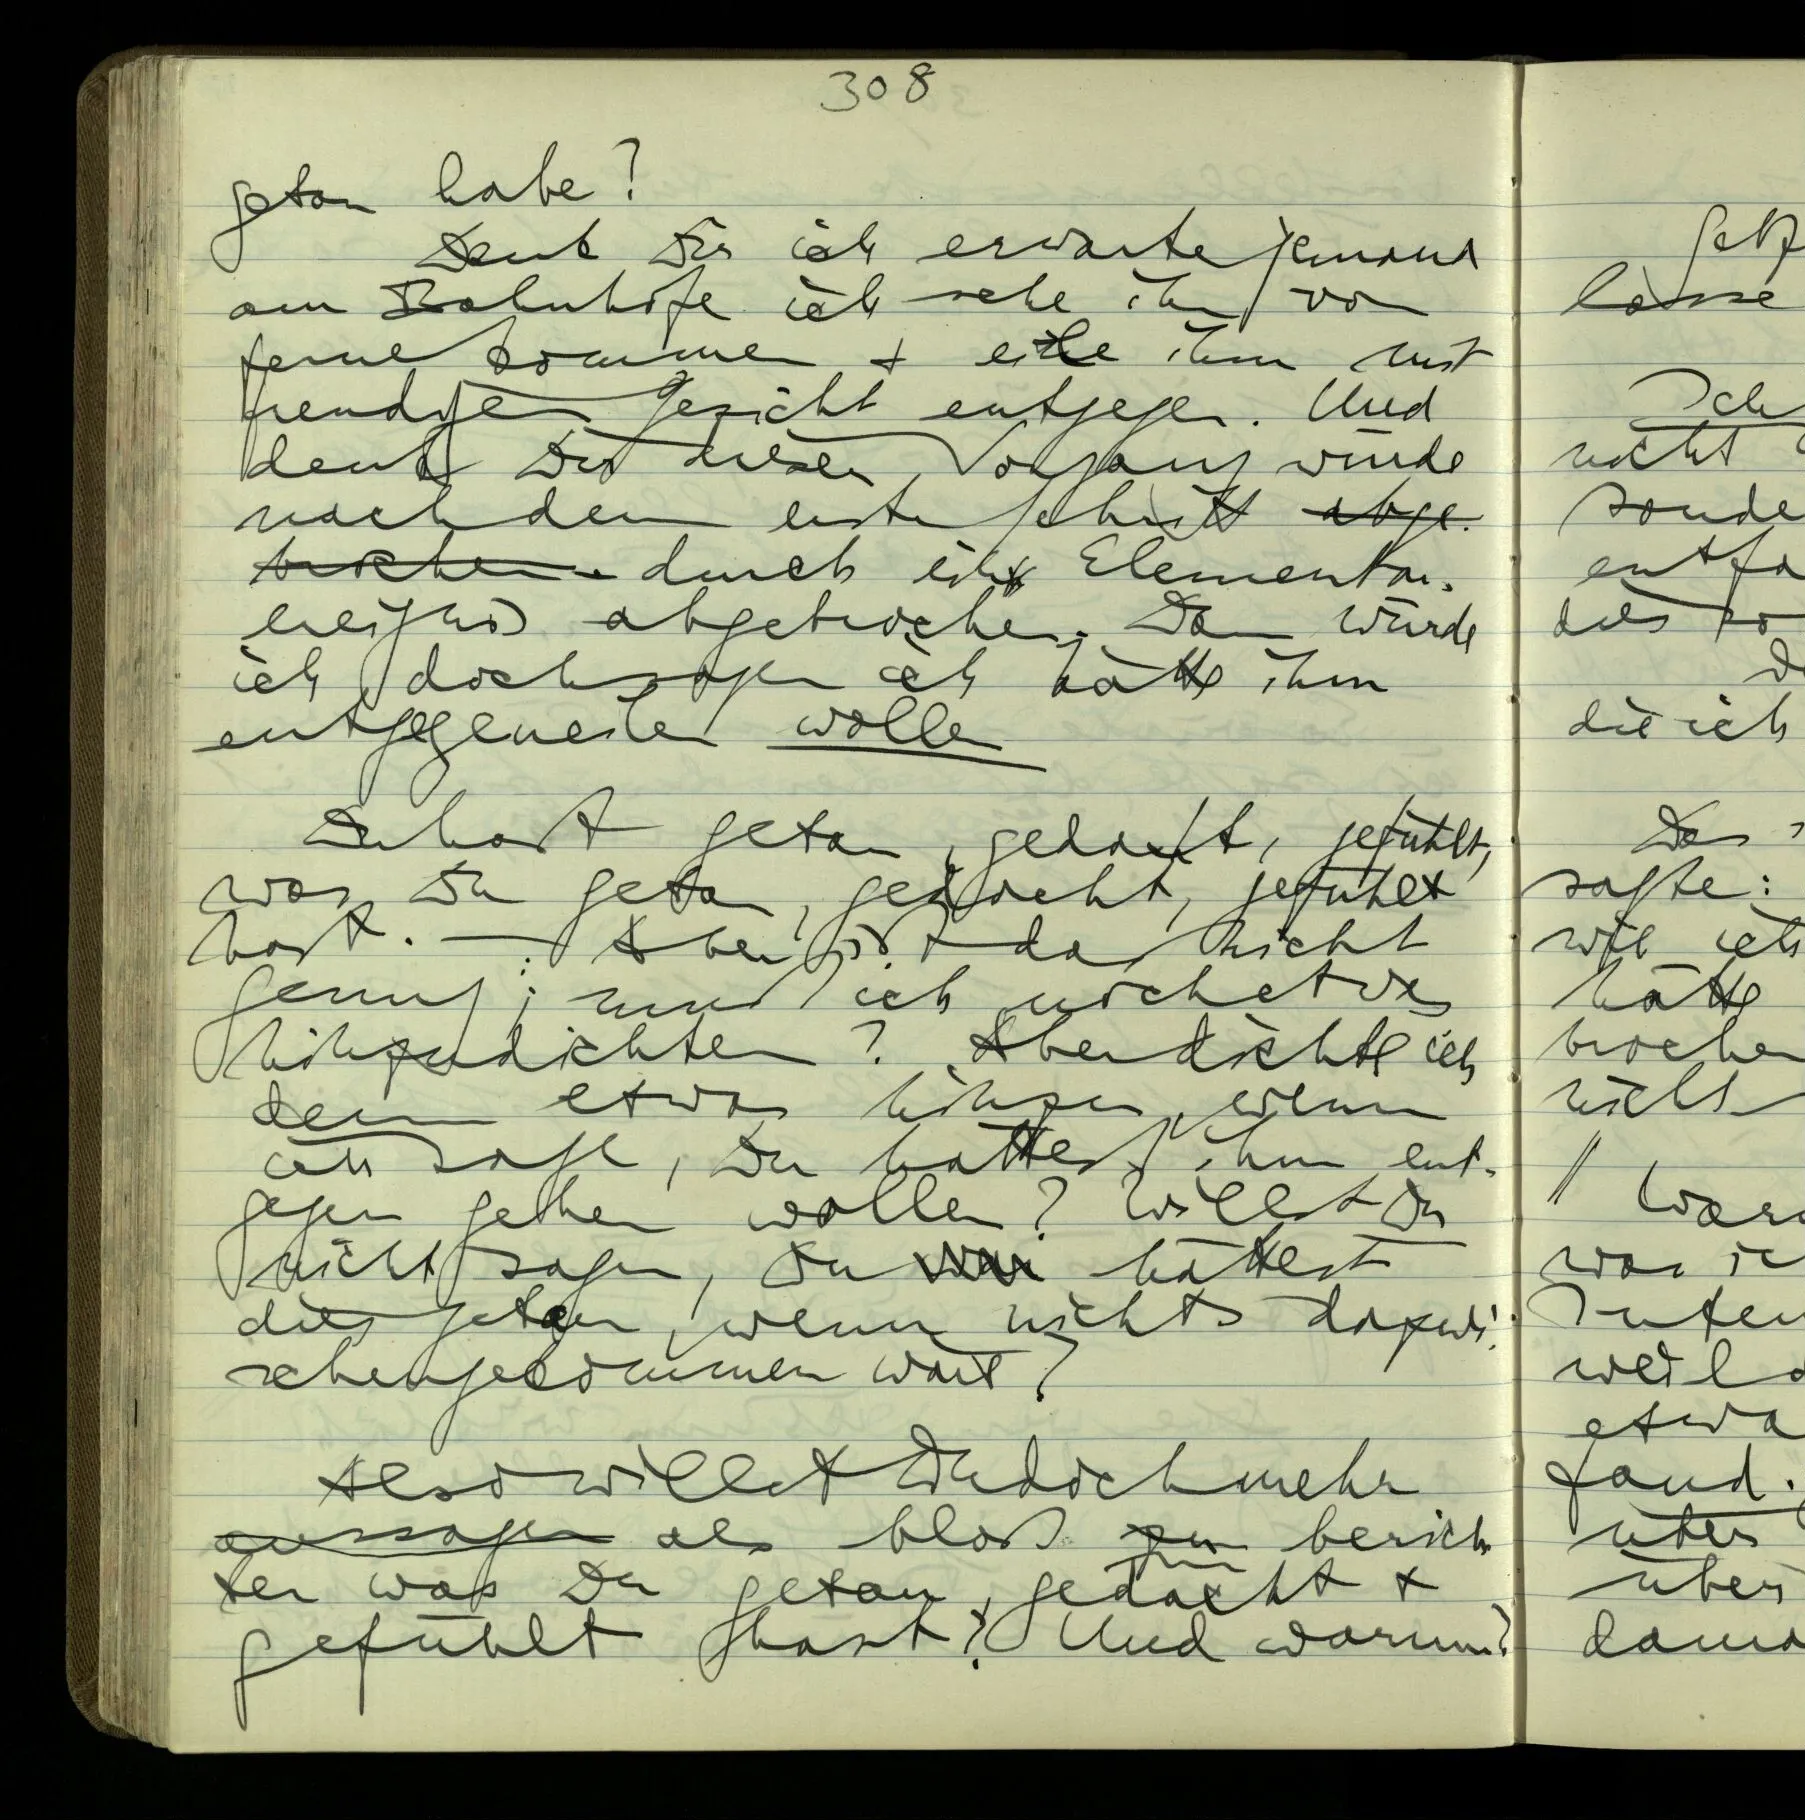 308
getan habe?
Denk Dir ich erwarte jemand
am Bahnhofe ich sehe ihn von
ferne kommen + eile ihm mit
freudigen Gesicht entgegen. Und
denk Dir dieser Vorgang würde
nach dem ersten Schritt abge-
brochen durch ein Elementar-
ereignis abgebrochen. Dann würde
ich doch sagen ich hätte ihm
entgegeneilen wollen
Du hast getan, gedacht, gefühlt,
was Du getan, gedacht, gefühlt
hast. — Aber ist das nicht
genug; muß ich noch etwas
hinzudichten? Aber dichte ich
denn etwas hinzu, wenn
ich sage, Du hattest ihm ent-
gegen gehen wollen? Willst Du
nicht sagen, Du hättest
dies getan, wenn nichts dazwi-
schengekommen wäre?
Also willst Du doch mehr
aussagen als bloß zu berich-
ten was Du getan, gedacht +
gefühlt hast? Und warum?
lasse
Ich
nicht
sonde
entfa
dies so
die ich
Das
sagte:
wie ich
hätte
brochen
nichts
// Waru
was ic
Inten
weil d
etwa
fand.
über
über
dama